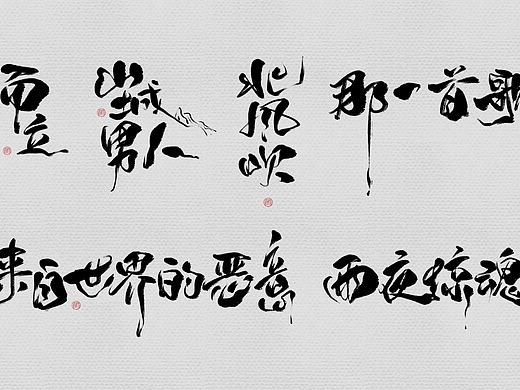 而立
山城
男人
北风吹
那一首歌
来自世界的恶意
雨夜惊魂